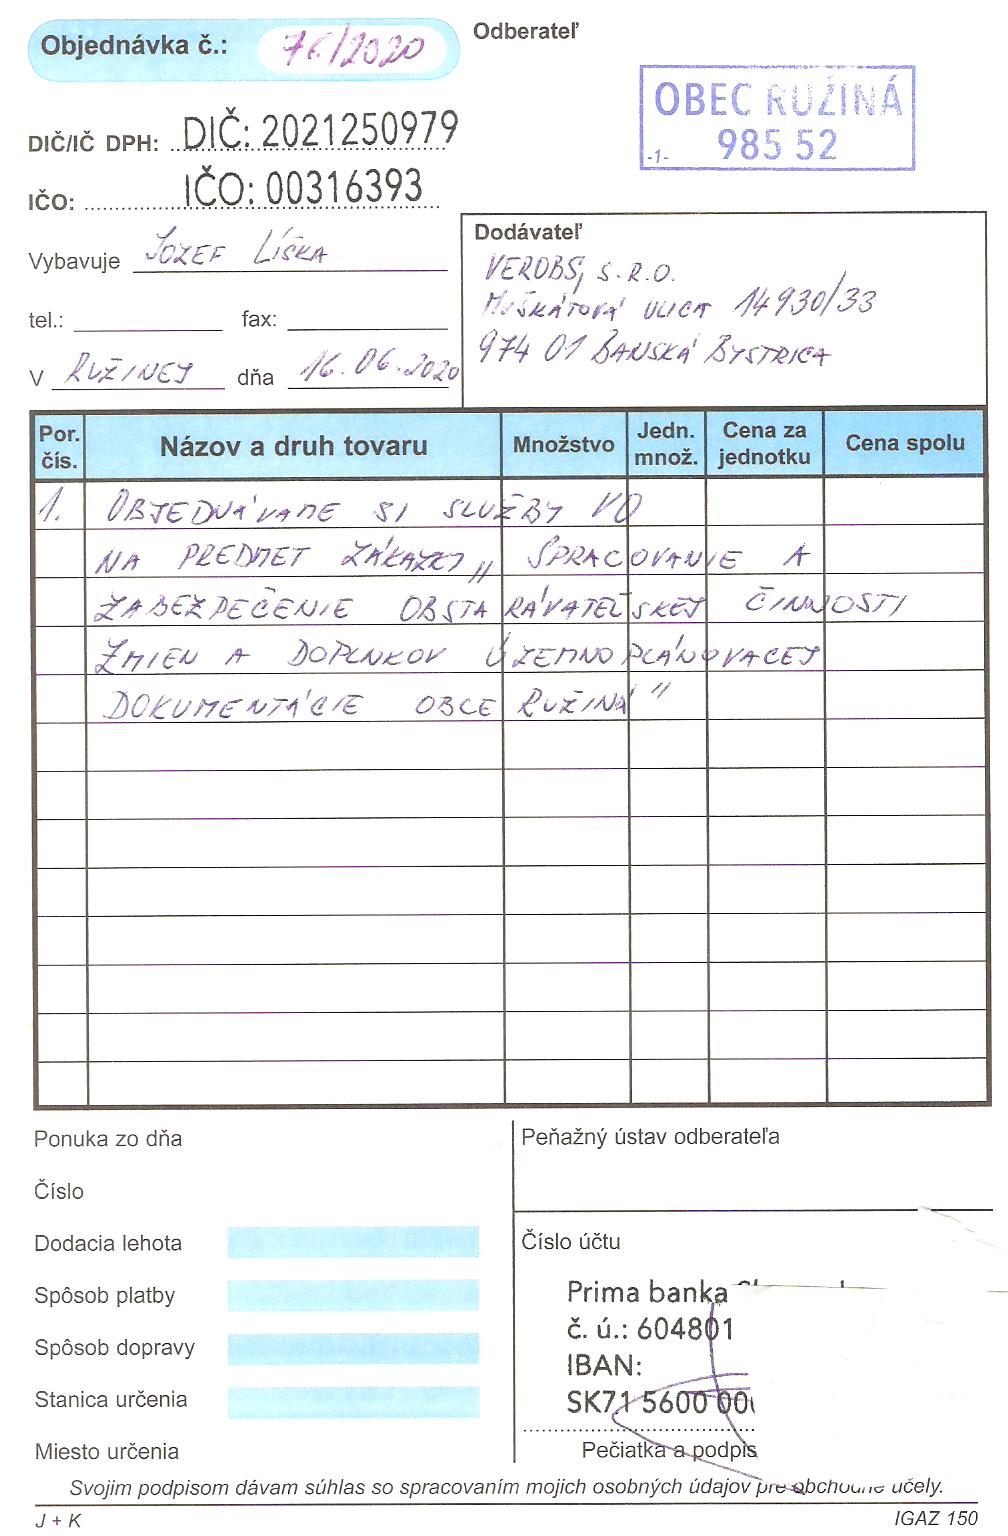 Objednávka č.: 76/2020
Odberateľ
OBEC RUŽINÁ
985 52
-1-
DIČ/IČ DPH: DIČ: 2021250979
IČO: IČO: 00316393
Vybavuje JOZEF LÍŠKA
tel.: fax:
V RUŽINEJ dňa 16.06.2020
Dodávateľ
VEROBS, S.R.O.
MUŠKÁTOVÁ ULICA 14930/33
974 01 BANSKÁ BYSTRICA
Por. čís. Názov a druh tovaru Množstvo Jedn. množ. Cena za jednotku Cena spolu
1. OBJEDNÁVAME SI SLUŽBY VO
NA PREDMET ZÁKAZKY „ SPRACOVANIE A
ZABEZPEČENIE OBSTARÁVATEĽSKEJ ČINNOSTI
ZMIEN A DOPLNKOV ÚZEMNOPLÁNOVACEJ
DOKUMENTÁCIE OBCE RUŽINÁ "
Ponuka zo dňa
Číslo
Dodacia lehota
Spôsob platby
Spôsob dopravy
Stanica určenia
Miesto určenia
Peňažný ústav odberateľa
Číslo účtu
Prima banka
č. ú.: 604801
IBAN:
SK71 5600 00
Pečiatka a podpis
Svojim podpisom dávam súhlas so spracovaním mojich osobných údajov pre obchodné účely.
J + K
IGAZ 150